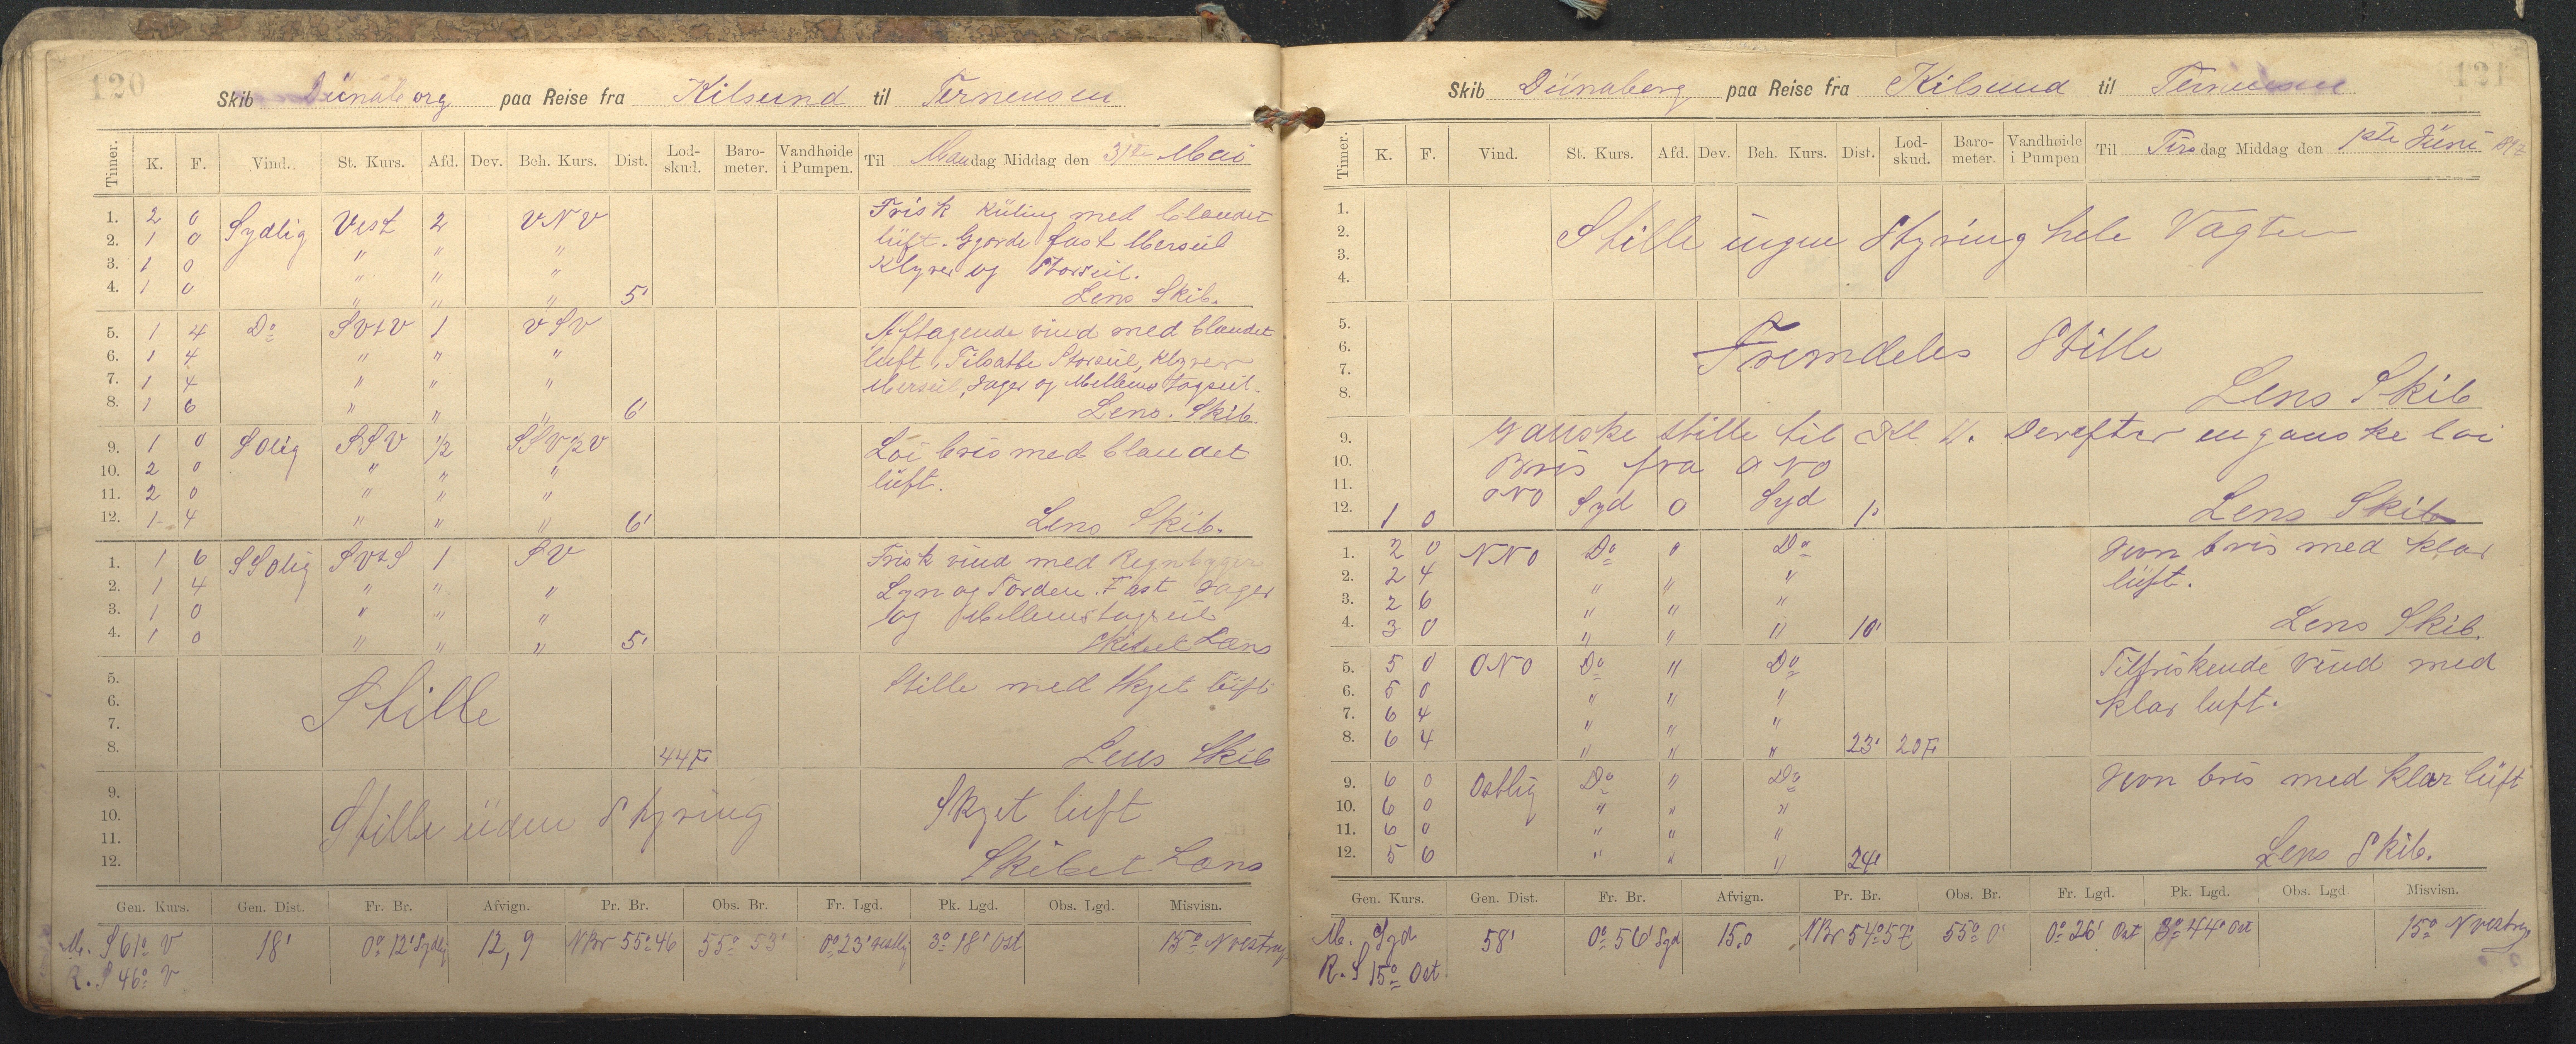 120
Skib Dünaborg paa Reise fra Kilsund til Terneusen
Timer. K. F. Vind. St. Kurs. Afd. Dev. Beh. Kurs. Dist. Lod-skud. Baro-meter. Vandhøide i Pumpen. Til Mandag Middag den 31te Mai
1. 2 0 Sydlig Vest 2 VNV Frisk Küling med blandet
2. 1 0 " " " lüft. Gjorde fast Merseil
3. 1 0 " " " Klyver og Storseil.
4. 1 0 " " " 5' Lens Skib.
5. 1 4 Do SVtV 1 VSV Aftagende vind med blandet
6. 1 4 " " " luft. Tilsatte Storseil, Klyver
7. 1 4 " " " Merseil, Jager og Mellemstagseil.
8. 1 6 " " " 6' Lens. Skib
9. 1 0 SOlig SSV 1/2 SSV1/2V Löi bris med blandet
10. 2 0 " " " lüft.
11. 2 0 " " "
12. 1 4 " " " 6' Lens Skib.
1. 1 6 SSOlig SVtS 1 SV Frisk vind med Regnbyger
2. 1 4 " " " Lyn og Torden. Fast Jager
3. 1 0 " " " og Mellemstagseil
4. 1 0 " " " 5' Skibet Læns
5. Stille med Skyet lüft
6. Stille
7.
8. 44 F. Lens Skib
9.
10. Stille üden Styring Skyet luft
11.
12. Skibet Læns
Gen. Kurs. Gen. Dist. Fr. Br. Afvign. Pr. Br. Obs. Br. Fr. Lgd. Pk. Lgd. Obs. Lgd. Misvisn.
M. S 61° V 18' 0° 12' Sydlig 12,9 NBr 55° 46 55° 53' 0° 23' vestlig 3° 18' Ost 15° N vestring
R. S 46° V
121
Skib Dünaborg paa Reise fra Kilsund til Terneusen
Timer. K. F. Vind. St. Kurs. Afd. Dev. Beh. Kurs. Dist. Lod-skud. Baro-meter. Vandhøide i Pumpen Til Tirsdag Middag den 1ste Jüni 1897
1.
2. Stille ingen Styring hele Vagten
3.
4.
5.
6. Fremdeles Stille
7.
8. Lens Skib
9. Ganske stille til Kl 11. Derefter en ganske löi
10. Bris fra ONO
11.
12. 1 0 ONO Syd 0 Syd 1' Lens Skib
1. 2 0 NNO Do " Do Jevn bris med klar
2. 2 4 " " " lüft.
3. 2 6 " " "
4. 3 0 " " " 10' Lens Skib.
5. 5 0 ONO Do " Do Tilfriskende vind med
6. 5 0 " " " klar luft.
7. 6 4 " " "
8. 6 4 " " " 23' 20 F.
9. 6 0 Ostlig Do " Do Jevn bris med klar lüft
10. 6 0 " " "
11. 6 0 " " "
12. 5 6 " " " 24' Lens Skib.
Gen. Kurs. Gen. Dist. Fr. Br. Afvign. Pr. Br. Obs. Br. Fr. Lgd. Pk. Lgd. Obs. Lgd. Misvisn.
M. Syd 58' 0° 56' Syd 15.0 NBr 54° 57' 55° 0' 0° 26' Ost 3° 44' Ost 15° N vestring
R. S 15° Ost